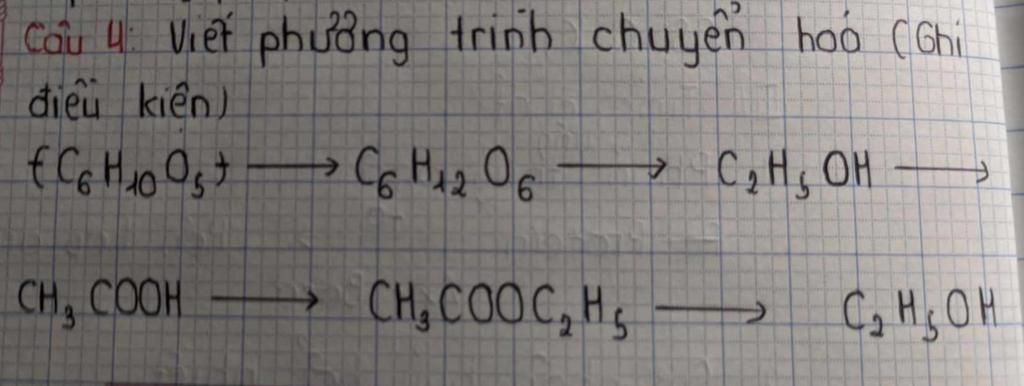 Câu 4: Viết phương trình chuyển hoá (Ghi
điều kiện)
(C₆H₁₀O₅) ⟶ C₆H₁₂O₆ ⟶ C₂H₅OH ⟶
CH₃COOH ⟶ CH₃COOC₂H₅ ⟶ C₂H₅OH